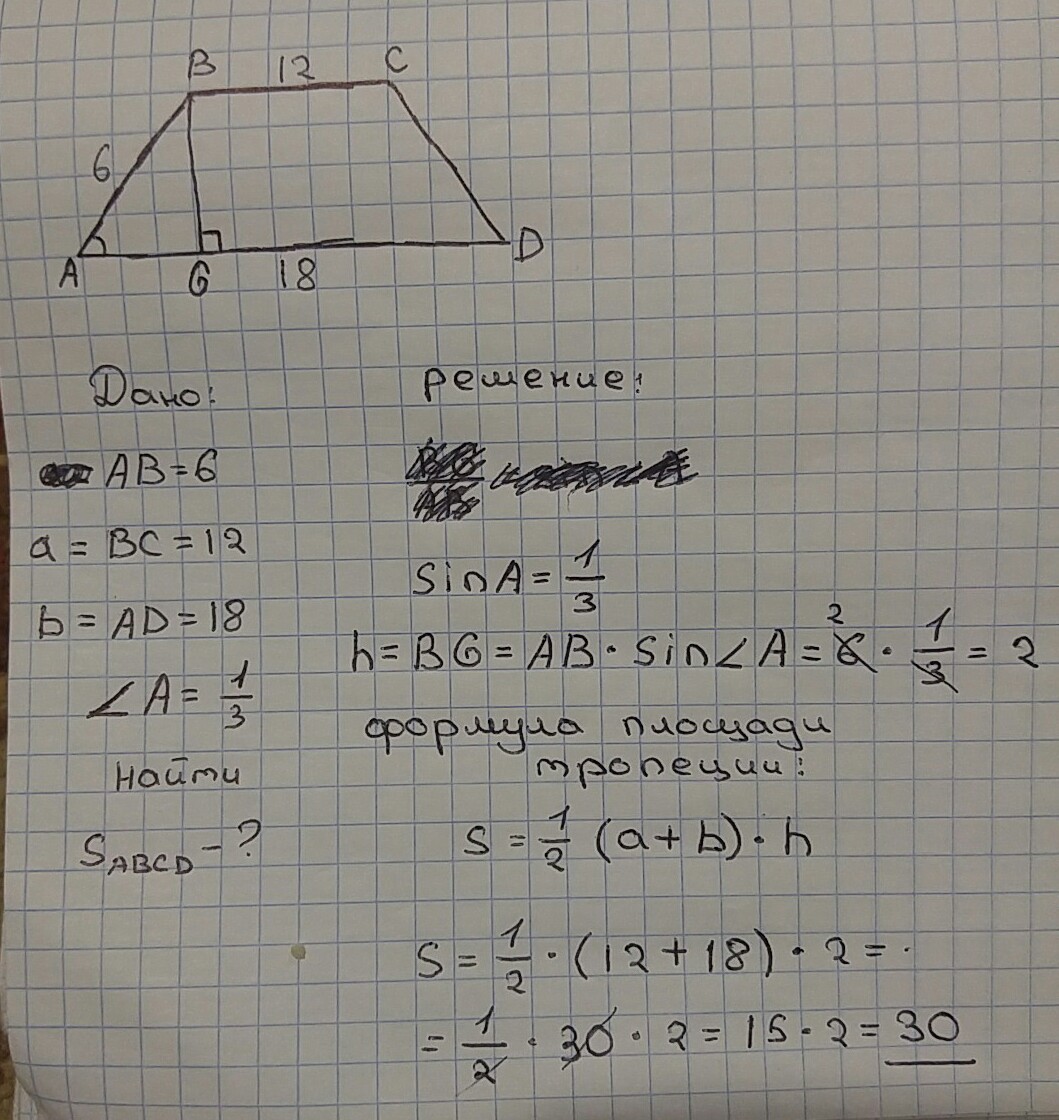 B 12 C
6
A G 18 D
Дано:
AB=6
a = BC = 12
b = AD = 18
∠A = 1/3
найти
S_ABCD - ?
решение:
sinA = 1/3
h = BG = AB · sin∠A = 6 · 1/3 = 2
2
формула площади
тропеции:
S = 1/2 (a + b) · h
S = 1/2 · (12 + 18) · 2 = ·
= 1/2 · 30 · 2 = 15 · 2 = 30